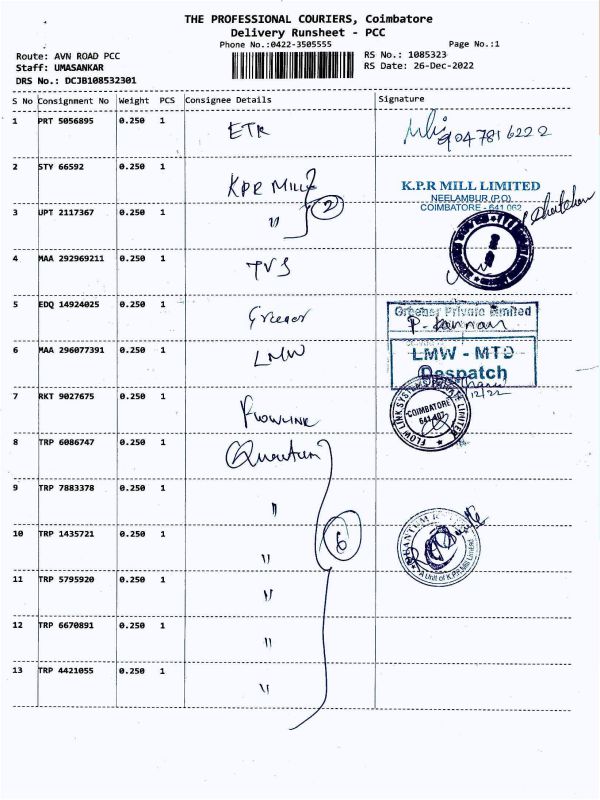 THE PROFESSIONAL COURIERS, Coimbatore
Delivery Runsheet - PCC
Phone No.:0422-3505555 Page No.:1
Route: AVN ROAD PCC RS No.: 1085323
Staff: UMASANKAR RS Date: 26-Dec-2022
DRS No.: DCJB108532301
S No Consignment No Weight PCS Consignee Details Signature
1 PRT 5056895 0.250 1 ETR 9047816222
2 STY 66592 0.250 1 KPR Mill
K.P.R MILL LIMITED
NEELAMBUR (P.O)
COIMBATORE - 641 062
3 UPT 2117367 0.250 1 " 2
4 MAA 292969211 0.250 1 TVS
5 EDQ 14924025 0.250 1 Greener Greener Private Limited
P. Kannan
6 MAA 296077391 0.250 1 LMW LMW - MTD
Despatch
12/22
7 RKT 9027675 0.250 1 FLOWLINK FLOW LINK SYSTEMS PRIVATE LIMITED
COIMBATORE
641 407
8 TRP 6086747 0.250 1 Quantum
9 TRP 7883378 0.250 1 "
10 TRP 1435721 0.250 1 " 6
A Unit of K.P.R Mill Limited
11 TRP 5795920 0.250 1 "
12 TRP 6670891 0.250 1 "
13 TRP 4421055 0.250 1 "